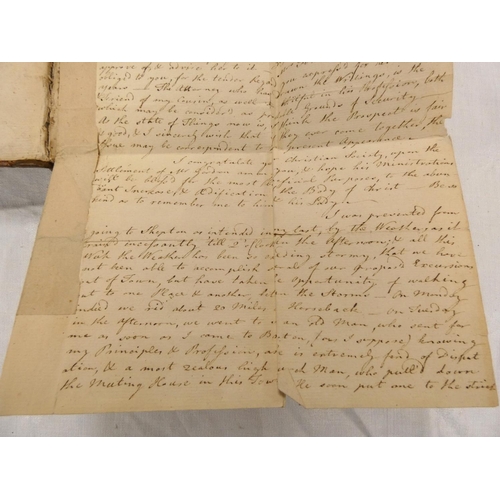 approve of, & advise her to it
obliged to you, for the tender Regard you express'd for
yours — The Attorney who drew the Writings, is the
Friend of my Cousin, as well as in his Profession, both
which may be consider'd as Grounds of Security —
As the state of Things now is, I think the Prospect is fair
& good, & I sincerely wish that if they ever come together, the
may be correspondent to present Appearance.
I congratulate you Christian Society, upon the
settlement of Mr Gordon among you, & hope his Ministrations
will be bless'd for the most to the
& Edification the Body of Christ Be so
kind as to remember me to him & his Lady —
I was prevented from
going to Shepton as intended in my last, by the Weather, as it
rain'd incessantly till 2 o'Clock in the Afternoon; & all this
Week the Weather has been so stormy, that we have
not been able to accomplish of our propos'd Excursions
out of Town, but have taken the opportunity of walking
out to one Place & another between the Storms — on Monday
indeed we rid about 20 Miles on Horseback — on Sunday
in the afternoon, we went to an old Man, who sent for
me as soon as I came to (as I suppose) knowing
my Principles & Profession, is extremely fond of Disput
ation, & a most zealous high Man, who pull'd down
the Meeting House in this Town He soon put me to the